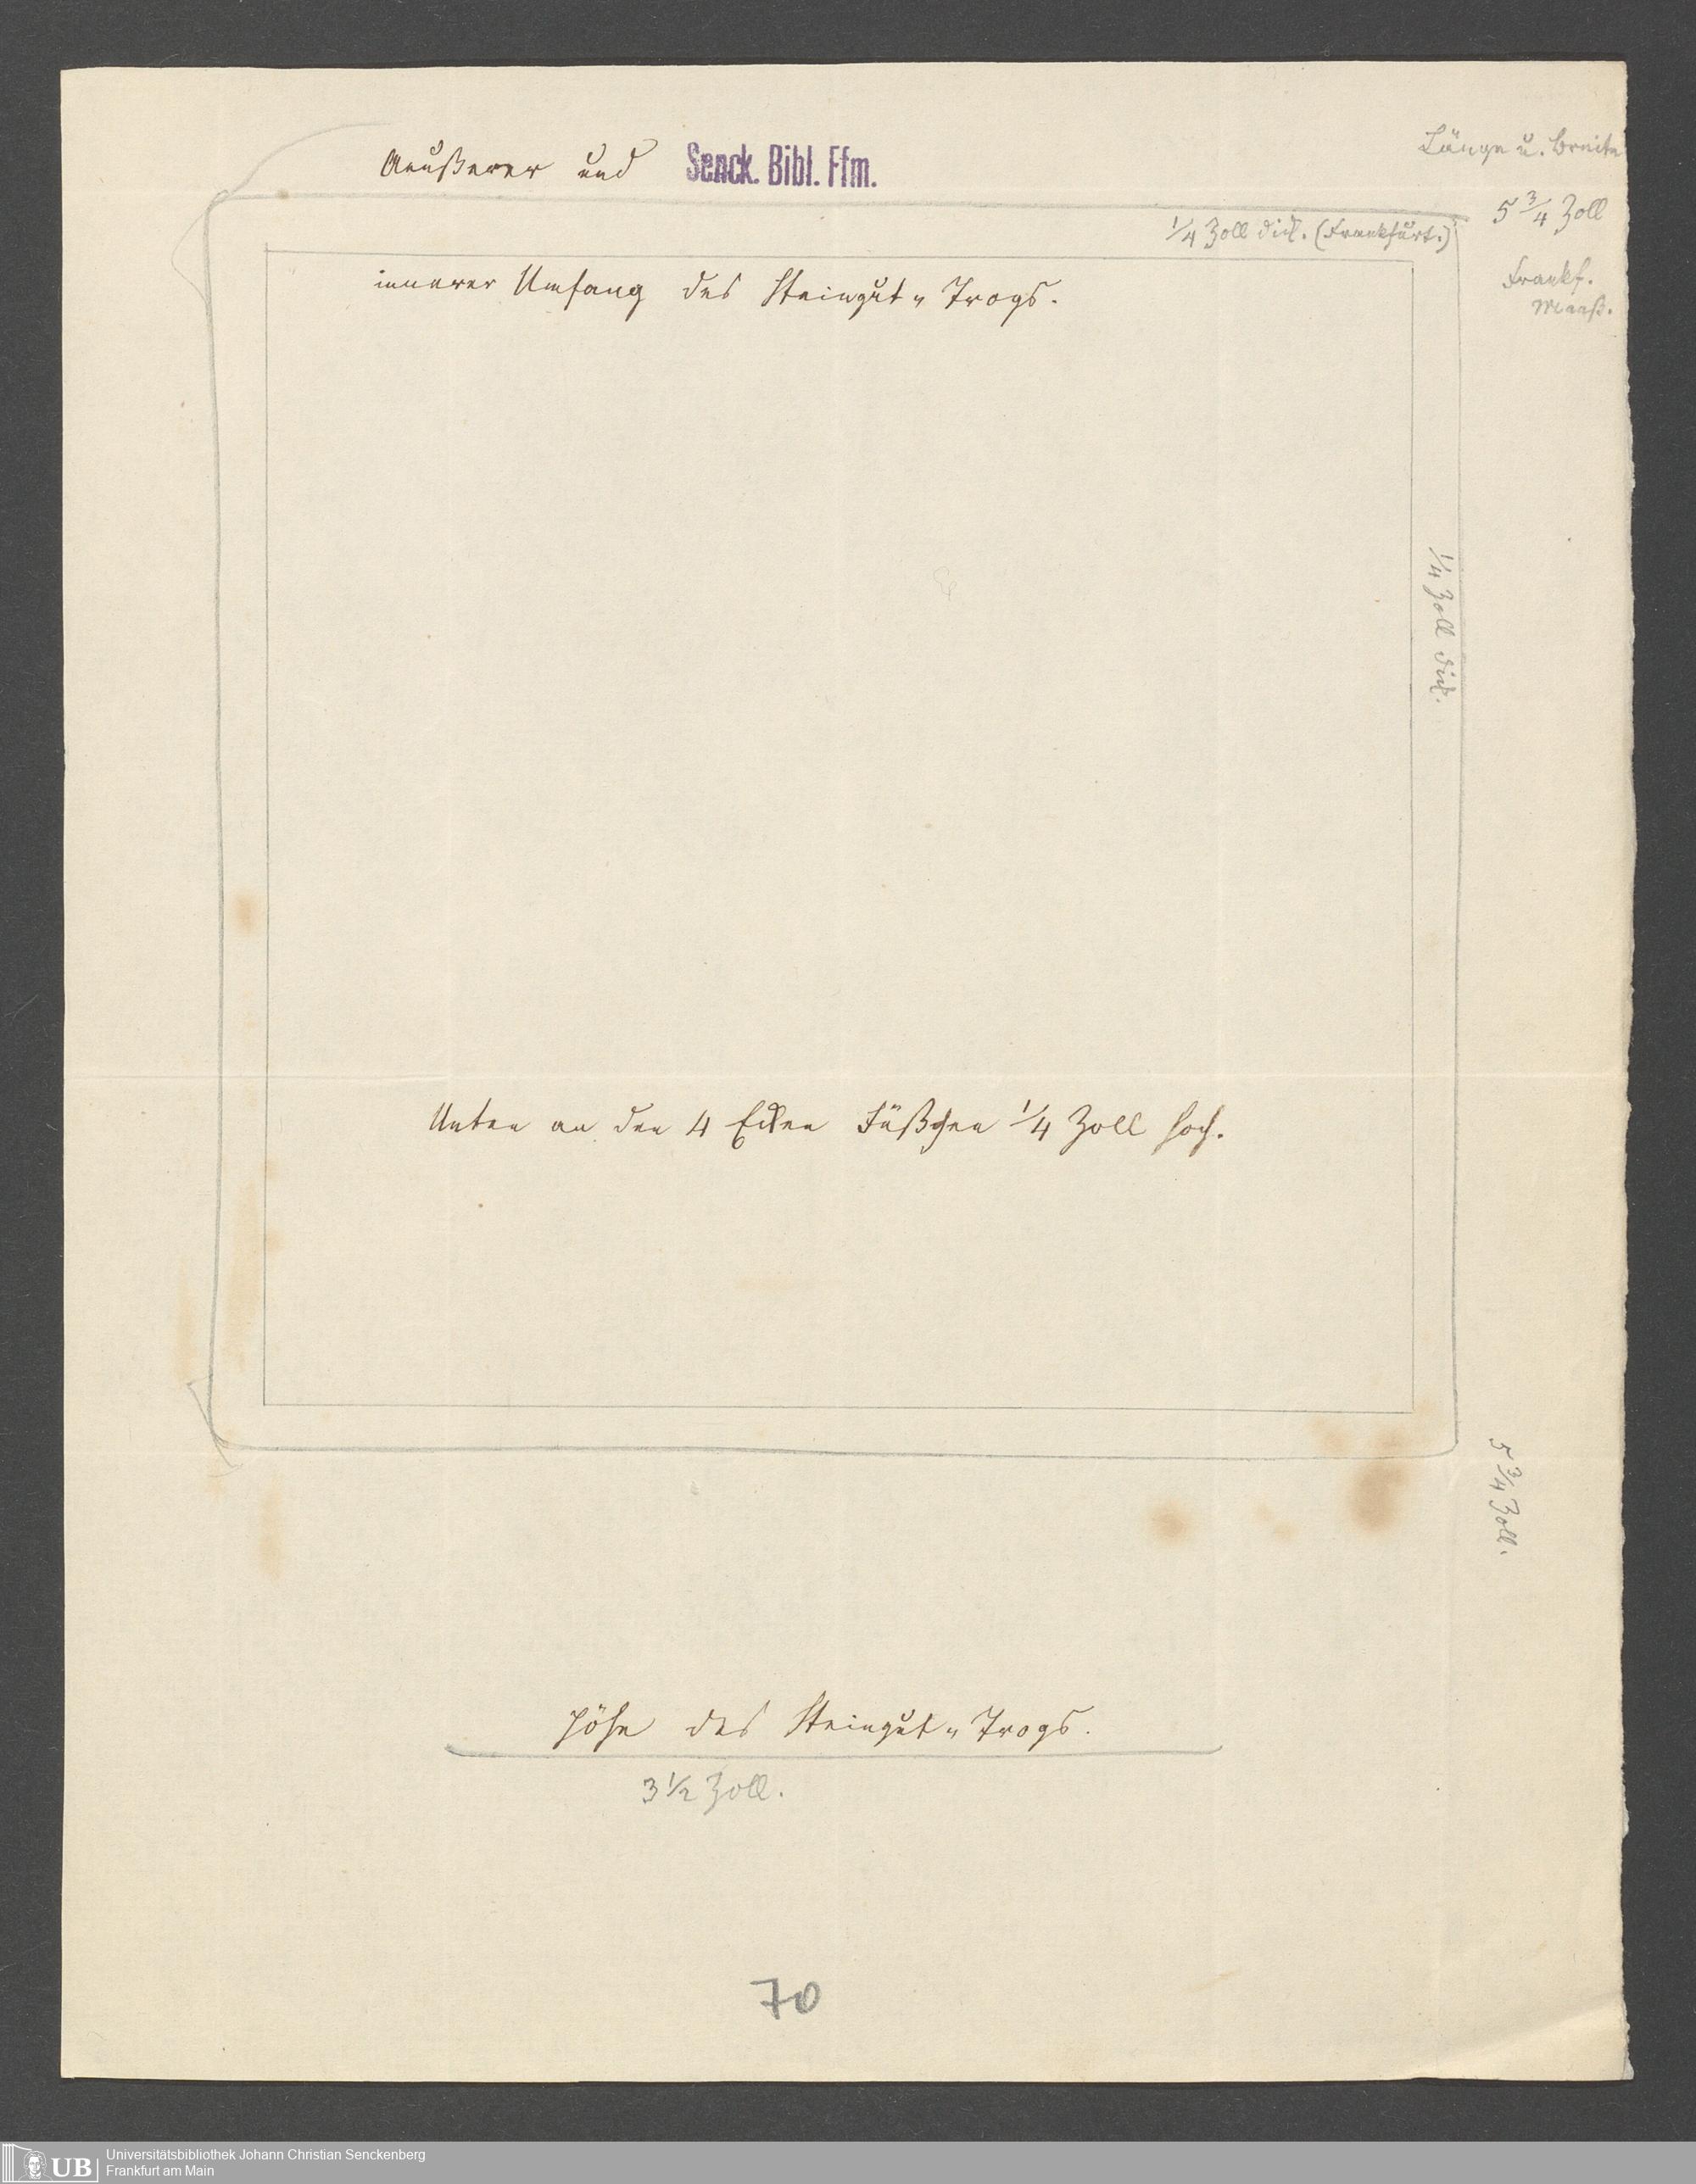 Aeußerer und
Senck. Bibl. Ffm.
Länge u. Breite
5 3/4 Zoll
Frankf.
Maaß.
1/4 Zoll dick. (Frankfurt.)
innerer Umfang des Steingut„Trogs.
1/4 Zoll dick.
Unten an den 4 Ecken Füßchen 1/4 Zoll hoch.
5 3/4 Zoll.
Höhe des Steingut„Trogs.
3 1/2 Zoll.
70
UB
Universitätsbibliothek Johann Christian Senckenberg
Frankfurt am Main